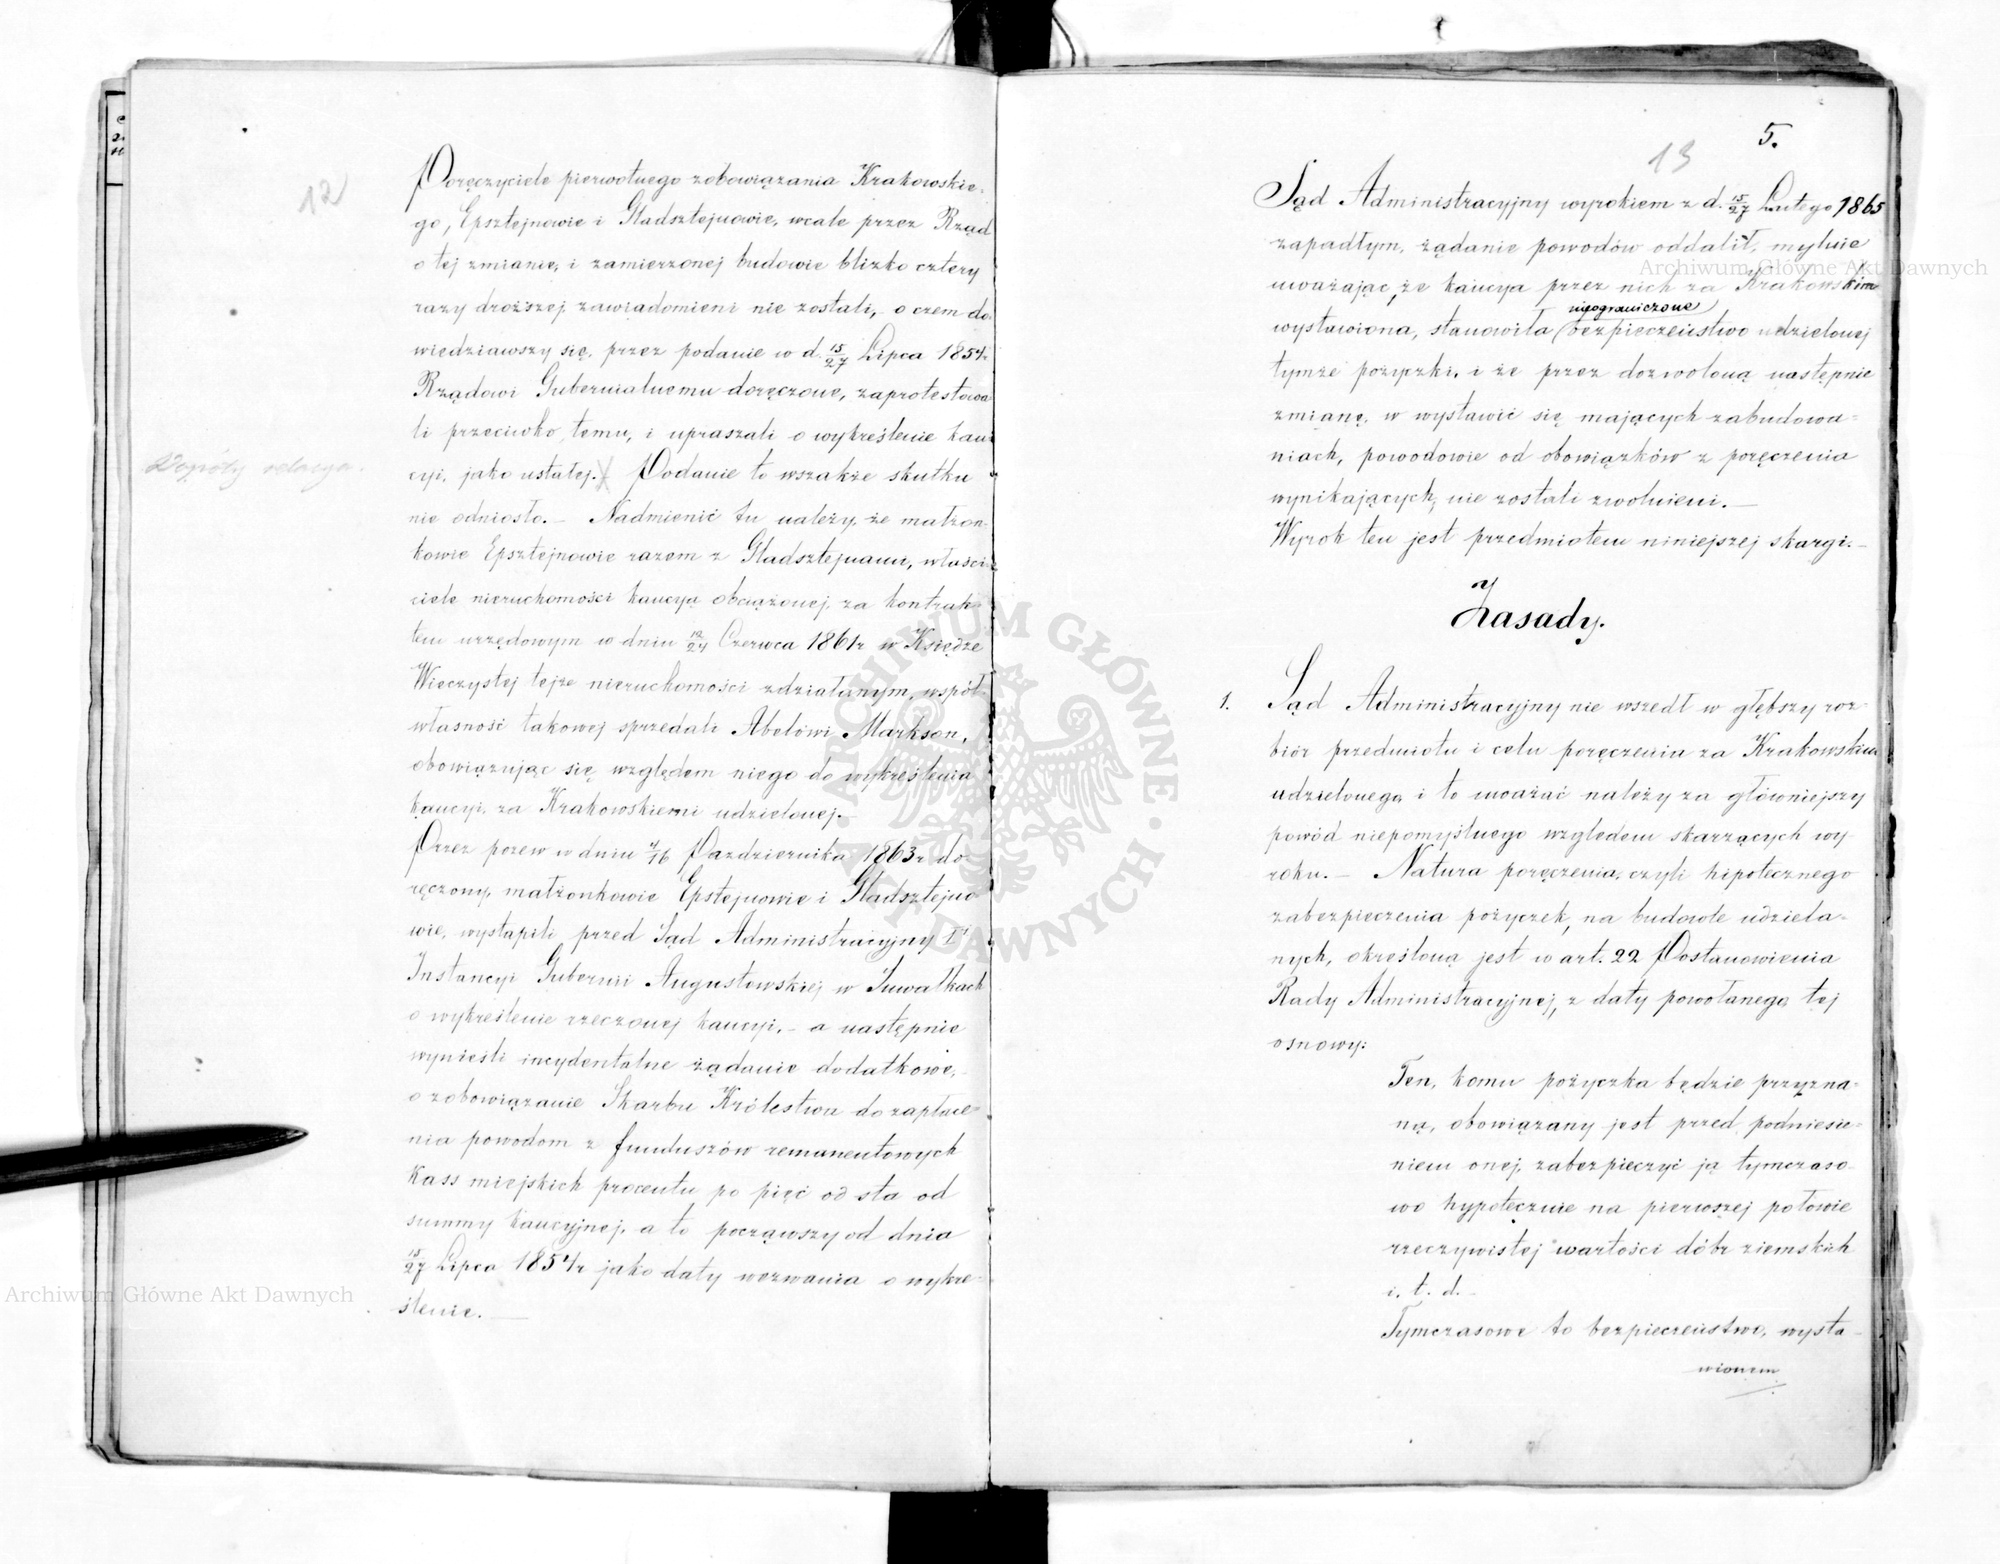 12
Poręczyciele pierwotnego zobowiązania Krakowskie-
go, Epsztejnowie i Gladsztejnowie, wcale przez Rząd
o tej zmianie, i zamierzonej budowie blizko cztery
razy droższej zawiadomieni nie zostali, o czem do-
wiedziawszy się, przez podanie w d. 15/27 Lipca 1854r
Rządowi Gubernialnemu doręczone, zaprotestowa-
li przeciwko temu, i upraszali o wykreślenie kau-
cyi, jako ustałej. Podanie to wszakże skutku
nie odniosło. – Nadmienić tu należy, że małżon-
kowie Epsztejnowie razem z Gladsztejnami, właści-
ciele nieruchomości kaucyą obciążonej, za kontrak-
tem urzędowym w dniu 12/24 Czerwca 1861r w Księdze
Wieczystej tejże nieruchomości zdziałanym, współ-
własność takowej sprzedali Abelowi Markson,
obowiązując się względem niego do wykreślenia
kaucyi, za Krakowskiemi udzielonej. –
Przez pozew w dniu 4/16 Października 1863r do-
ręczony, małżonkowie Epstejnowie i Gladsztejno-
wie, wystąpili przed Sąd Administracyjny Iej
Instancyi Gubernii Augustowskiej w Suwałkach
o wykreślenie rzeczonej kaucyi, – a następnie
wynieśli incydentalne żądanie dodatkowe,
o zobowiązanie Skarbu Królestwa do zapłace-
nia powodom z funduszów remanentowych
Kass miejskich procentu po pięć od sta od
summy kaucyjnej, a to począwszy od dnia
15/27 Lipca 1854r jako daty wezwania o wykre-
ślenie. –
13
5.
Sąd Administracyjny wyrokiem z d. 15/27 Lutego 1865
zapadłym, żądanie powodów oddalił, mylnie
uważając, że kaucya przez nich za Krakowskim
nieograniczone
wystawiona, stanowiła bezpieczeństwo udzielonej
tymże pożyczki, i że przez dozwoloną następnie
zmianę, w wystawić się mających zabudowa-
niach, powodowie od obowiązków z poręczenia
wynikających, nie zostali zwolnieni. –
Wyrok ten jest przedmiotem niniejszej skargi. –
Zasady.
1. Sąd Administracyjny nie wszedł w głębszy roz-
biór przedmiotu i celu poręczenia za Krakowskim
udzielonego, i to uważać należy za główniejszy
powód niepomyślnego względem skarżących wy-
roku. – Natura poręczenia, czyli hipotecznego
zabezpieczenia pożyczek, na budowle udziela-
nych, określoną jest w art. 22 Postanowienia
Rady Administracyjnej, z daty powołanego tej
osnowy:
Ten, komu pożyczka będzie przyzna-
ną, obowiązany jest przed podniesie-
niem onej, zabezpieczyć ją tymczaso-
wo hypotecznie na pierwszej połowie
rzeczywistej wartości dóbr ziemskich
i. t. d. –
Tymczasowe to bezpieczeństwo, wysta-
wionem
Archiwum Główne Akt Dawnych
Archiwum Główne Akt Dawnych
ARCHIWUM GŁÓWNE AKT DAWNYCH